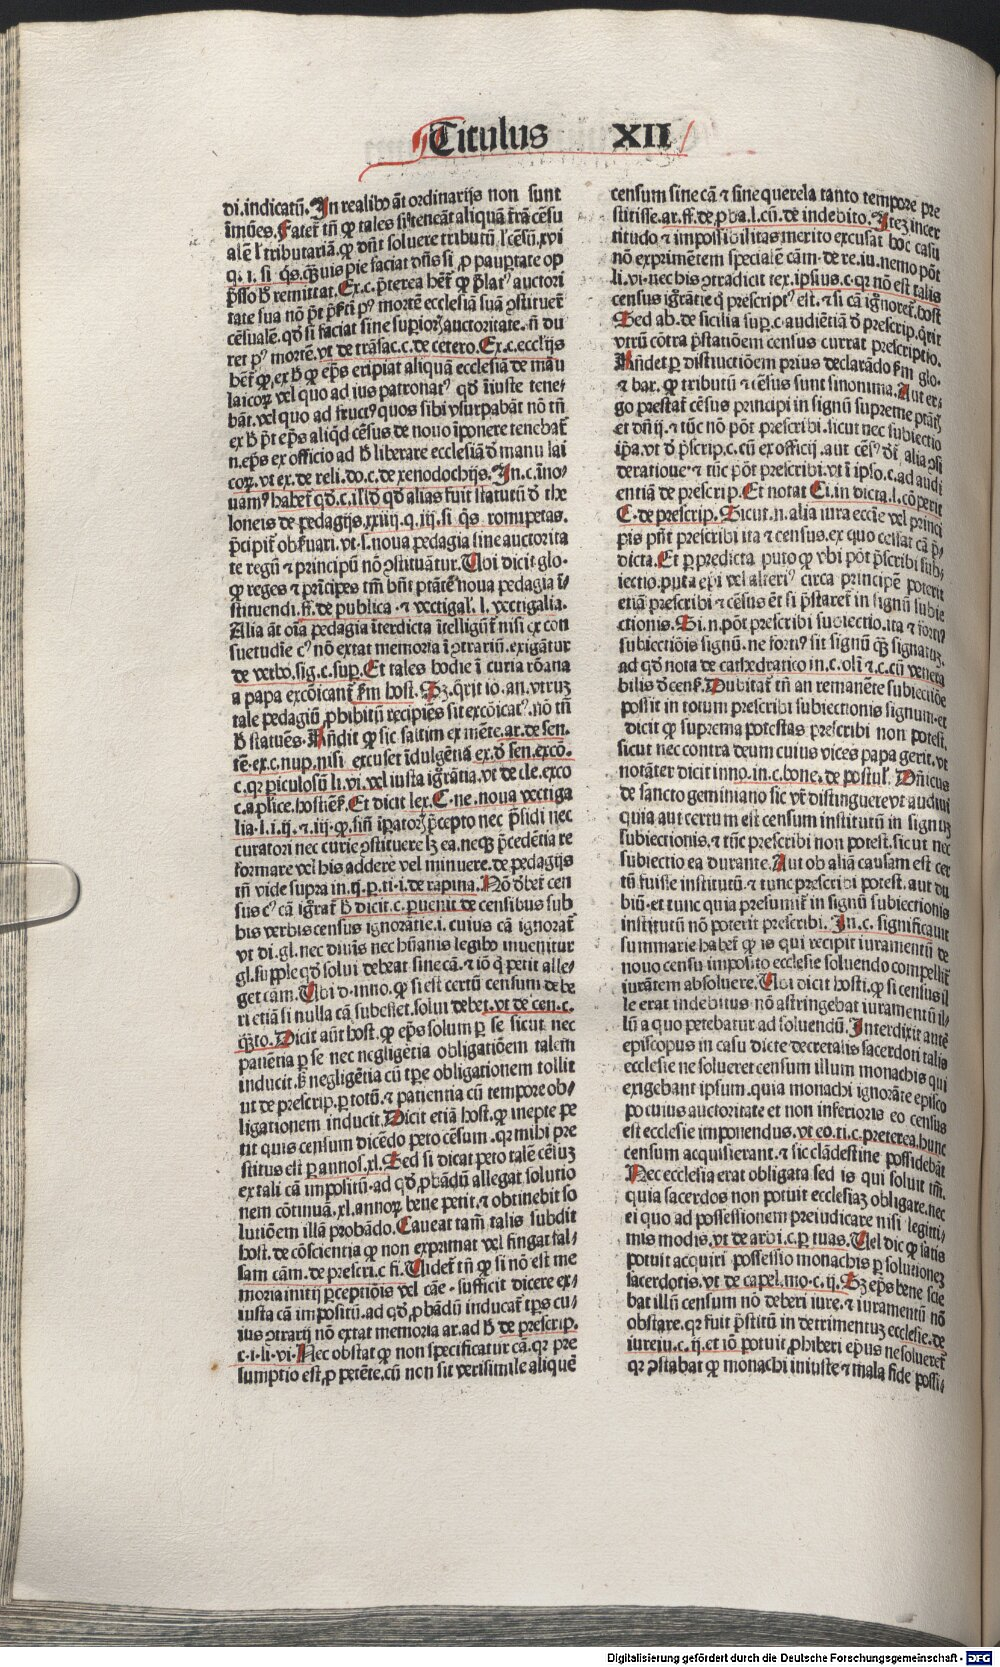 Titulus XII
di.indicatū. In realibꝰ āt ordinarijs non sunt
īmūes. Fatet̄ tn̄ ꝙ tales si teneāt aliquā t̄rā cēsu
alē l̓ tributariā.ꝙ dn̄t soluere tributū l̓ cēsū.xvi
q. i. si q̄s. q̄uis pie faciat dn̄s si ꝓ paup̄tate op
p̄sso ħ remittat. Ex.c. p̄terea hēt̄ ꝙ p̄latꝰ auctori
tate sua nō pōt p̄fici pꝰ mortē ecclesiā suā ꝯstituēt
cēsualē. qd̓ si faciat sine supiorꝭ auctoritate. n̄ du
ret pꝰ mortē. vt de trāsac.c. de cetero. Ex.c. ecclijs
hēt̄ ꝙ, ex ħ ꝙ ep̄s eripiat aliquā ecclesiā de māu
laicoꝝ vel quo ad ius patronatꝰ qd̓ īiuste tene⸗
bāt. vel quo ad fructꝰ quos sibi vsurpabāt nō tn̄
ex ħ pōt ep̄s aliqd̓ cēsus de nouo īponere tenebat̄
n. ep̄s ex officio ad ħ liberare ecclesiā d̓ manu lai
coꝝ. vt ex. de reli. do. c. de xenodochijs. In.c. īno⸗
uamꝰ habet̄ qd̓.c. illd̓ qd̓ alias fuit statutū d̓ the
loneis de pedagijs. xxiiij. q. iij. si q̄s romipetas.
p̄cipit̄ obẜuari. vt.s. noua pedagia sine auctorita
te regū ⁊ principū nō ꝯstituātur. Ubi dicit glo.
ꝙ reges ⁊ prīcipes tm̄ hn̄t ptātē noua pedagia ī⸗
stituendi. ff. de publica. ⁊ vectigal̓. l. vectigalia.
Alia āt oīa pedagia īterdicta ītelligūt̄ nisi ex con
suetudīe cꝰ nō extat memoria ī ꝯtrariū. exigātur
de verbo. sig. c. sup. Et tales hodie ī curia rōana
a papa excōicant̄ ẜm host. Sꝫ q̄rit io. an. vtruꝫ
tale pedagiū ꝓhibitū recipiēs sit excōicatꝰ. nō tn̄
ħ statuēs. Rn̄dit ꝙ sic saltim ex mēte. ar. de sen.
tē. ex. c. nup. nisi excuset īdulgētia ex. d̓ sen. excō.
c. qꝛ piculosū li. vi. vel iusta ignrātia. vt de cle. exco
c. aplice. hostiēẜ. Et dicit lex. C. ne. noua vectiga
lia. l. i. ij. ⁊. iij. ꝙ. sin̄ īpatorꝭ p̄cepto nec p̄sidi nec
curatori nec curie ꝯstituere lꝫ ea. necꝫ p̄cedētia re
formare vel his addere vel minuere. de pedagijs
tn̄ vide supra in. ij. p. ti. i. de rapina. Nō d̓bet̄ cen
sus cꝰ cā ignrat̄ ħ dicit. c. peruenit de censibus sub
his verbis census ignoratie. i. cuius cā ignorat̄
vt di. gl. nec diuīs nec hūanis legibꝰ inuenitur
gl. supple qd̓ solui debeat sine cā. ⁊ iō q̄ petit alle⸗
get cām. Ubi d. inno. ꝙ si est certū censum debe
ri etiā si nulla cā subesset. solui debet. vt de cen. c.
q̄to. Dicit aūt host. ꝙ ep̄s solum p se sicut nec
patiētia p se nec negligētia obligatiōem talem
inducit. sꝫ negligētia cū tp̄e obligationem tollit
ut de prescrip. p totū. ⁊ patientia cū tempore ob⸗
ligationem inducit. Dicit etiā host. ꝙ inepte pe
tit quis censum dicēdo peto cēsum. qꝛ mihi pre
stitus est p annos. xl. Sed si dicat peto talē cēsuꝫ
ex tali cā impositū. ad qd̓ ꝓbādū allegat solutio
nem cōtinuā. xl. annoꝝ bene petit. ⁊ obtinebit so
lutiōem illā probādo. Caueat tam̄ talis subdit
host. de cōscientia ꝙ non exprimat vel fingat fal⸗
sam cām. de prescri. c fi. Uidet̄ tn̄ ꝙ si nō est me
moria initij perceptiōis vel cāe. sufficit dicere ex⸗
iusta cā impositū. ad qd̓ ꝓbādū inducat̄ tp̄s cu⸗
ius ꝯtrarij nō extat memoria ar. ad ħ de prescrip.
c. i. li. vi. Nec obstat ꝙ non specificatur cā. qꝛ pre
sumptio est ꝓ petēte. cū non sit verisimile aliquē
censum sine cā ⁊ sine querela tanto tempore pre
stitisse. ar. ff. de pba. l. cū. de indebito. Iteꝫ incer
titudo ⁊ impossibilitas merito excusat hoc casu
nō exprimētem specialē cām. de re. iu. nemo pōt
li. vi. nec his ꝯtradicit tex. ipsius. c. qꝛ nō est talis
census ignratie q̄ prescriptꝰ est. ⁊ si cā ignoret̄. host
Sed ab. de sicilia sup. c. audiētiā d̓ prescrip. q̄rit
vtrū cōtra p̄statiōem census currat prescriptio.
Rn̄det p distinctiōem prius declarādo ẜm glo.
⁊ bar. ꝙ tributū ⁊ cēsus sunt sinonima. Aut er⸗
go prestat̄ cēsus principi in signū supreme ptātꝭ
et dn̄ij. ⁊ tūc nō pōt prescribi. sicut nec subiectio
ip̄a. vt d̓ p̄scrip. c. cū ex officij. aut cēsꝰ dꝫ alia ꝯsi
deratioue ⁊ tūc pōt prescribi. vt ī ipso. c. ad audi
entiā de prescrip. Et notat Ci. in dicta. l. cōperit
C. de prescrip. Sicut. n. alia iura ecclīe vel princi
pis pn̄t prescribi ita ⁊ census. ex quo cessat cā p̄⸗
dicta. Et p predicta puto ꝙ vbi pōt p̄scribi sub⸗
iectio. puta ep̄i vel alteriꝰ circa principē poterit
etiā prescribi ⁊ cēsus ēt si p̄staret̄ in signū subie
ctionis. Si. n. pōt prescribi subiectio. ita ⁊ fortiꝰ
subiectiōis signū. ne fortiꝰ sit signū q̄ꝫ signatuꝫ.
ad qd̓ nota de cathedratico in. c. olī ⁊. c. cū venera
bilis d̓ cenẜ. Dubitat̄ tn̄ an remanēte subiectiōe
possit in totum prescribi subiectionis signum. et
dicit ꝙ suprema potestas prescribi non potest.
sicut nec contra deum cuius vices papa gerit. vt
notāter dicit inno. in. c. bone. de postul̓. Dn̄icus
de sancto geminiano sic vt̄ distinguere vt audiui
quia aut certum est censum institutū in signuꝫ
subiectionis. ⁊ tūc prescribi non potest. sicut nec
subiectio ea durante. Aut ob aliā causam est cer
tū fuisse institutū. ⁊ tunc prescribi potest. aut du
biū. et tunc quia presumit̄ in signū subiectionis
institutū nō poterit prescribi. In. c. significauit
summarie habet̄ ꝙ is qui recipit iuramentū de
nouo censu imposito ecclesie soluendo compellit̄
iurātem absoluere. Ubi dicit hosti. ꝙ si census il
le erat indebitus nō astringebat iuramentū il⸗
lū a quo petebatur ad soluendū. Interdixit autē
episcopus in casu dicte decretalis sacerdoti talis
ecclesie ne solueret censum illum monachis qui
exigebant ipsum. quia monachi ignorāte episco
po cuius auctoritate et non inferioris eo census
est ecclesie imponendus. vt eo. ti. c. preterea. hunc
censum acquisierant. ⁊ sic clādestine possidebāt
Nec ecclesia erat obligata sed is qui soluit tm̄.
quia sacerdos non potuit ecclesiaꝫ obligare. nec
ei quo ad possessionem preiudicare nisi legitti⸗
mis modis. vt de arbi. c. p tuas. Uel dic ꝙ satis
potuit acquiri possessio monachis p solutioneꝫ
sacerdotis. vt de capel. mo. c. ij. Sꝫ ep̄s bene scie
bat illū censum nō deberi iure. ⁊ iuramentū nō
obstare. qꝛ fuit p̄stitū in detrimentuꝫ ecclesie. de
iureiu. c. ij. et iō potuit ꝓhiberi ep̄us ne solueret̄
qꝛ ꝯstabat ꝙ monachi iniuste ⁊ mala fide possi⸗
Digitalisierung gefördert durch die Deutsche Forschungsgemeinschaft - DFG